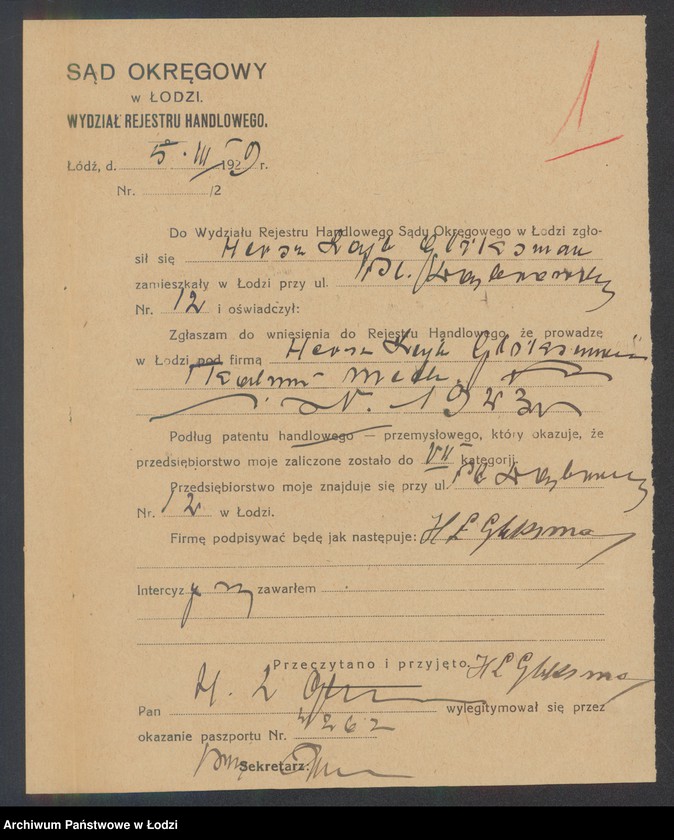 SĄD OKRĘGOWY
W ŁODZI.
WYDZIAŁ REJESTRU HANDLOWEGO.
1
Łódź, d. 5. III 1929 r.
Nr. /2
Do Wydziału Rejestru Handlowego Sądu Okręgowego w Łodzi zgło-
sił się Hersz Lajb Gliksman
zamieszkały w Łodzi przy ul. Pl.
Nr. 12 i oświadczył:
Zgłaszam do wniesienia do Rejestru Handlowego, że prowadzę
w Łodzi pod firmą Hersz Lajb Gliksman
mech.
1923
Podług patentu handlowego — przemysłowego, który okazuje, że
przedsiębiorstwo moje zaliczone zostało do VII kategorji.
Przedsiębiorstwo moje znajduje się przy ul. Pl.
Nr. 12 w Łodzi.
Firmę podpisywać będę jak następuje: H L Gliksman
Intercyz zawarłem
Przeczytano i przyjęto H L Gliksman
Pan H. L. wylegitymował się przez
okazanie paszportu Nr. 4262
Sekretarz:
Archiwum Państwowe w Łodzi